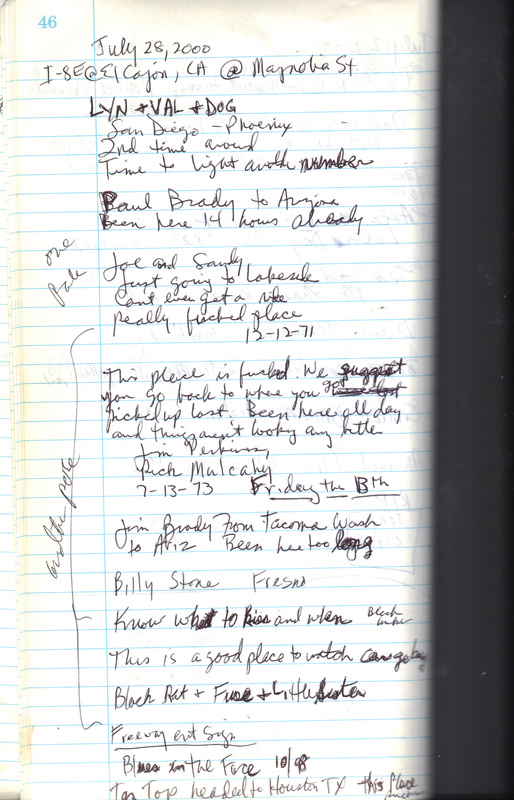 46
July 28, 2000
I-8E @ El Cajon, CA @ Magnolia St
LYN + VAL + DOG
San Diego - Phoenix
2nd time around
Time to light another number
Paul Brady to Arizona
Been here 14 hours already
one
Pole
Joe and Sandy
Just going to Lakeside
Cant even get a ride
really fucked place
12-12-71
This place is fucked. We suggest
you go back to where you got
picked up last. Been here all day
and things arent looking any better
Jim Perkins,
Rich Mulcahy
7-13-73 Friday the 13th
another pole
Jim Brady From Tacoma Wash
to Ariz Been here too long
Billy Stone Fresno
Know what to kiss and when Black
This is a good place to watch cars go by
Black Rat + Fuse + Little Sister
Freeway ent Sign
Blues in the Face 10/98
Tan Top headed to Houston TX this place